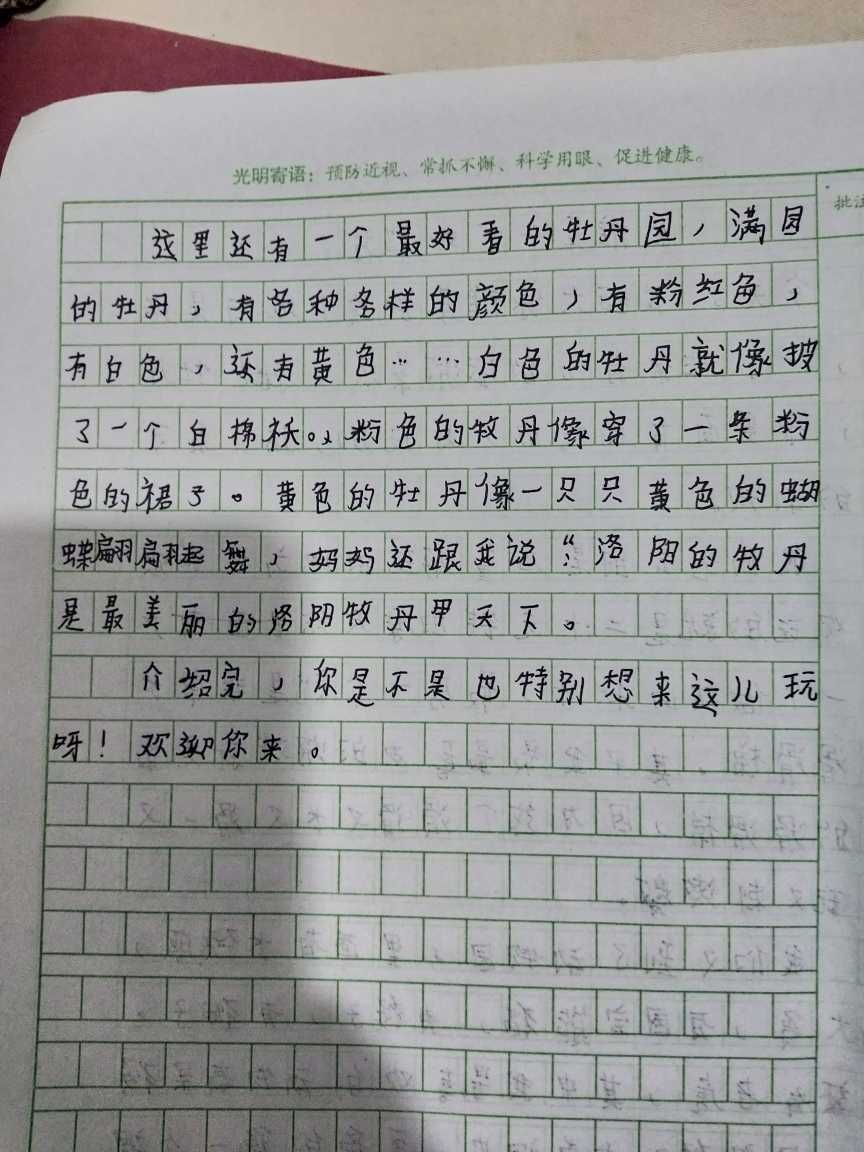 光明寄语：预防近视、常抓不懈、科学用眼、促进健康。
批注
这里还有一个最好看的牡丹园，满园
的牡丹，有各种各样的颜色，有粉红色，
有白色，还有黄色……白色的牡丹就像披
了一个白棉袄。，粉色的牧丹像穿了一条粉
色的裙子。黄色的牡丹像一只只黄色的蝴
蝶翩翩起舞，妈妈还跟我说“：洛阳的牧丹
是最美丽的洛阴牧丹甲天下。
介绍完，你是不是也特别想来这儿玩
呀！欢迎你来。